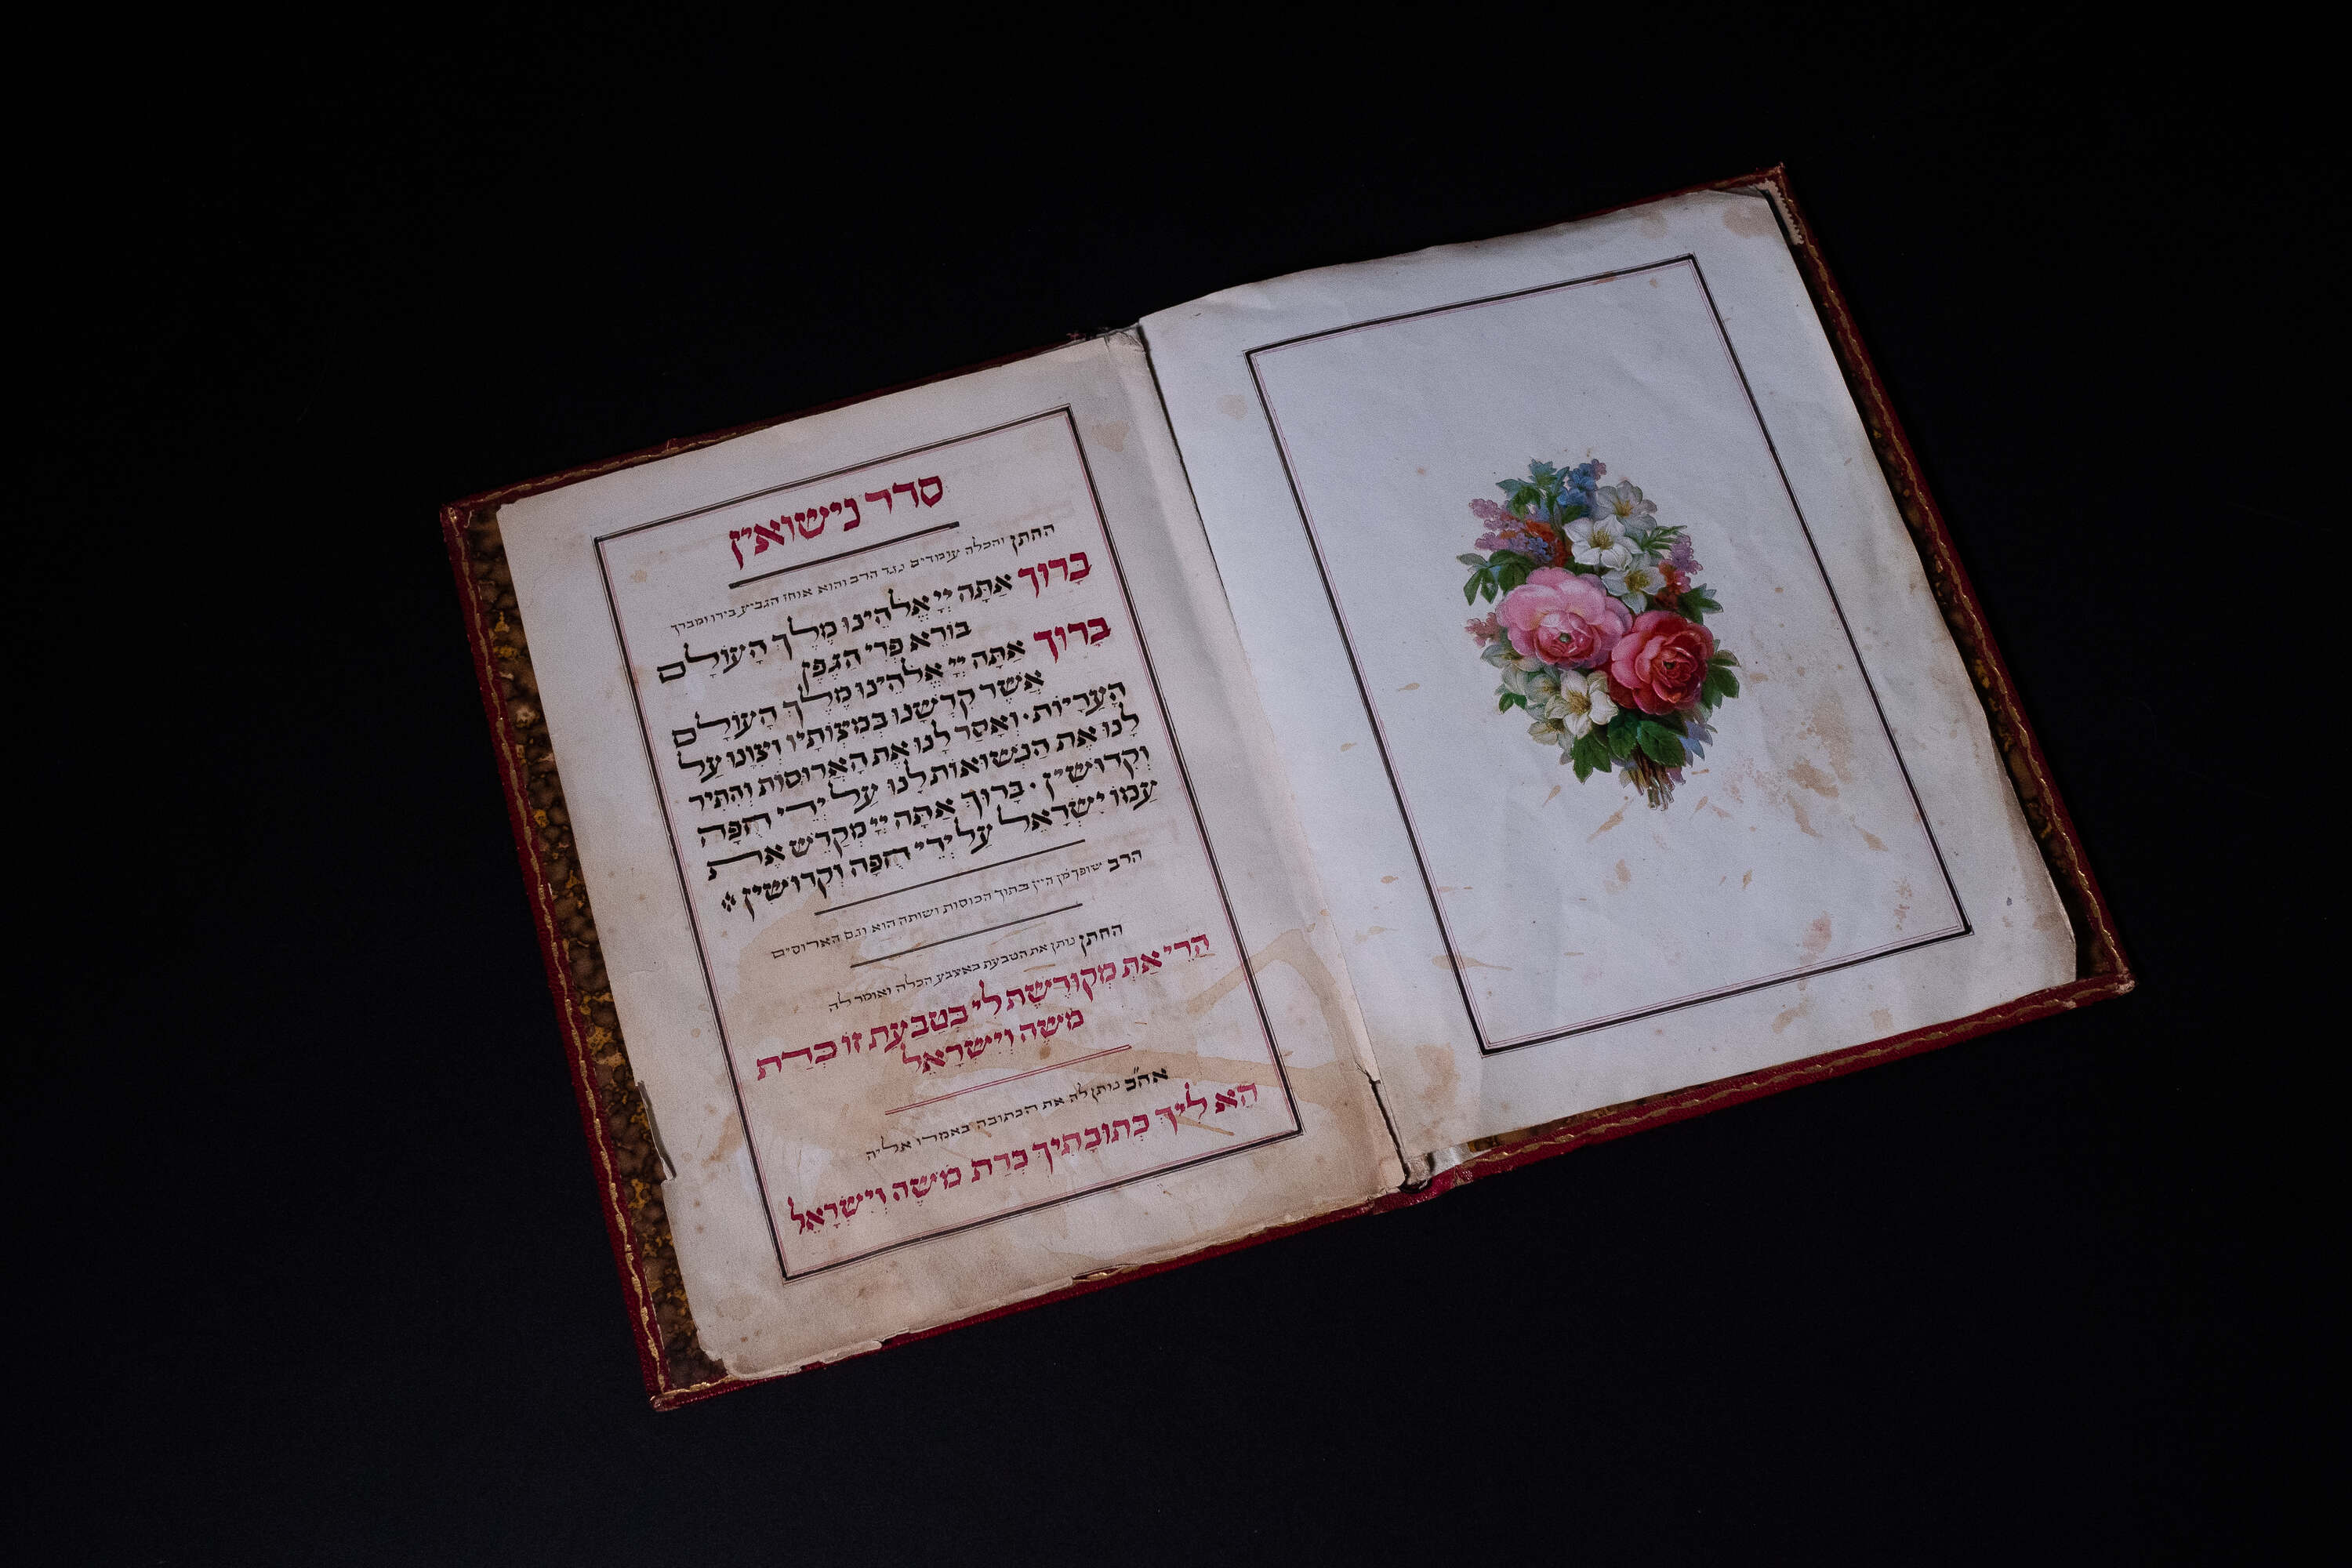 סדר נישואין
החתן והכלה עומדים נגד הרב והוא אוחז הגביע בידו ומברך
בָּרוּךְ אַתָּה יְיָ אֱלֹהֵינוּ מֶלֶךְ הָעוֹלָם
בּוֹרֵא פְּרִי הַגֶּפֶן
בָּרוּךְ אַתָּה יְיָ אֱלֹהֵינוּ מֶלֶךְ הָעוֹלָם
אֲשֶׁר קִדְּשָׁנוּ בְּמִצְוֹתָיו וְצִוָּנוּ עַל
הָעֲרָיוֹת · וְאָסַר לָנוּ אֶת הָאֲרוּסוֹת וְהִתִּיר
לָנוּ אֶת הַנְּשׂוּאוֹת לָנוּ עַל יְדֵי חֻפָּה
וְקִדּוּשִׁין · בָּרוּךְ אַתָּה יְיָ מְקַדֵּשׁ אֶת
עַמּוֹ יִשְׂרָאֵל עַל יְדֵי חֻפָּה וְקִדּוּשִׁין
הרב שופך מן היין בתוך הכוסות ושותה הוא וגם הארוסים
החתן נותן את הטבעת באצבע הכלה ואומר לה
הֲרֵי אַתְּ מְקוּדֶּשֶׁת לִי בְּטַבַּעַת זוֹ כְּדַת
מֹשֶׁה וְיִשְׂרָאֵל
אח״כ נותן לה את הכתובה באמרו אליה
הֵא לִיךְ כְּתוּבָּתִיךְ כְּדַת מֹשֶׁה וְיִשְׂרָאֵל